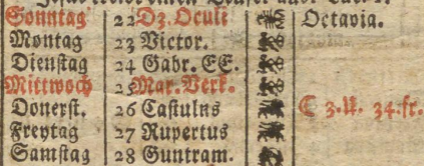 Sonntag 22 D3. Oculi Octavia.
Montag 23 Victor.
Dienstag 24 Gabr. EE.
Mittwoch 25 Mar. Verk.
Donerst. 26 Castulns ☾ 3. U. 34. fr.
Freytag 27 Rupertus
Samstag 28 Guntram.